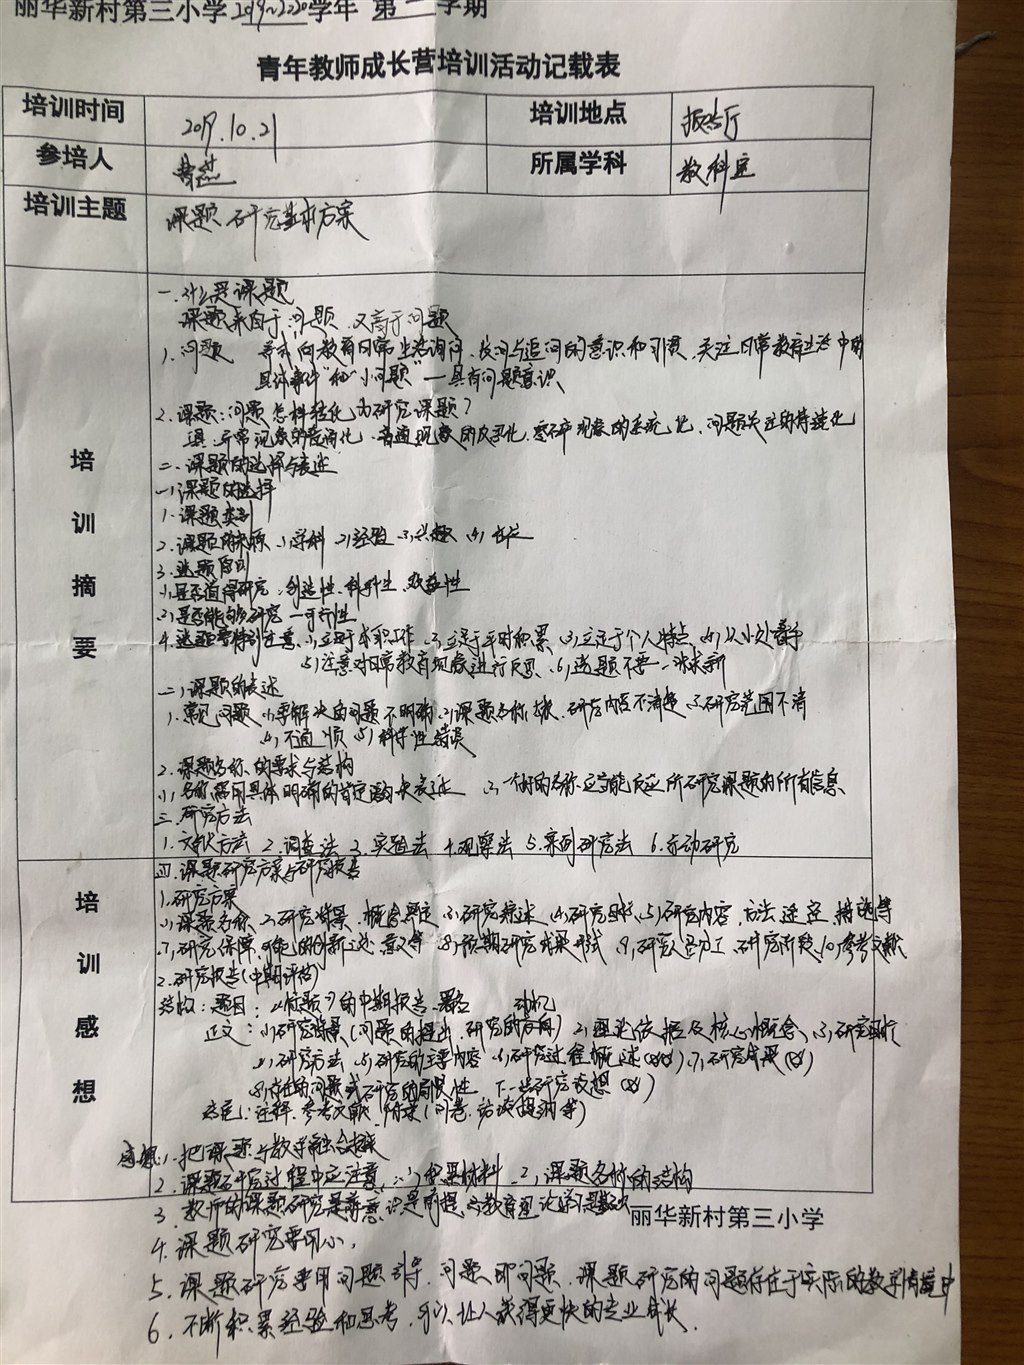 丽华新村第三小学2019~2020学年 第一学期
青年教师成长营培训活动记载表
培训时间 2019.10.21 培训地点 报告厅
参培人 所属学科 教科室
培训主题 课题研究基本方案
培训摘要
一.什么是课题
课题来自于问题,又高于问题
1.问题 寻求向教育日常生活询问、反问与追问的意识和习惯,关注日常教育生活中的
具体事件"和"小问题"—具有问题意识
2.课题:问题怎样转化为研究课题?
异常现象的 化、普通现象的 化、零碎现象的系统化、问题关注的持续化
二.课题的选择与表述
一)课题的选择
1.课题类别
2.课题的来源 1)学科 2)经验 3)兴趣 4)
3.选题原则
1)是否值得研究,创造性、科学性、效益性
2)是否能够研究—可行性
4.选题要特别注意:1)立足于本职工作 2)立足于平时积累 3)立足于个人特点 4)从小处着手
5)注意对日常教育现象进行反思、6)选题不要一味求新
二)课题的表述
1.常见问题 1)要解决的问题不明确 2)课题名称 ,研究内容不清楚 3)研究范围不清
4)不通顺 5)科学性错误
2.课题名称的要求与结构
1)名称需用具体明确的肯定 表述 2)一个好的名称应当能反应所研究课题的所有信息
三.研究方法
1.文献方法 2.调查法 3.实验法 4.观察法 5.案例研究法 6.行动研究
培训感想
四.课题研究方案与研究报告
1.研究方案
1)课题名称、2)研究背景、概念界定 3)研究综述 4)研究目标 5)研究内容、方法途径、措施等
7)研究保障、可能的创新之处、意义等 8)预期研究成果形式 9)研究人员分工、研究阶段 10)参考文献
2.研究报告(中期评估)
结构:题目:《(标题)》的中期报告、署名 动机
正文:1)研究背景(问题的提出、研究的方向)2)理论依据及核心概念、3)研究目标
4)研究方法 5)研究的主要内容 6)研究过程概述 7)研究成果
8)存在的问题或研究的局限性 下一步研究设想
:注释、参考文献、附录(问卷、访谈提纲等)
感想:1.把课题与教学融合起来
2.课题研究过程中应注意:1)积累材料 2)课题名称的结构
3.教师的课题研究是 意识是前提、教育理论学习是
丽华新村第三小学
4.课题研究要用心。
5.课题研究要用问题引导,问题即问题,课题研究的问题存在于实际的教学情境中
6.不断积累经验和思考,可以让人获得更快的专业成长.